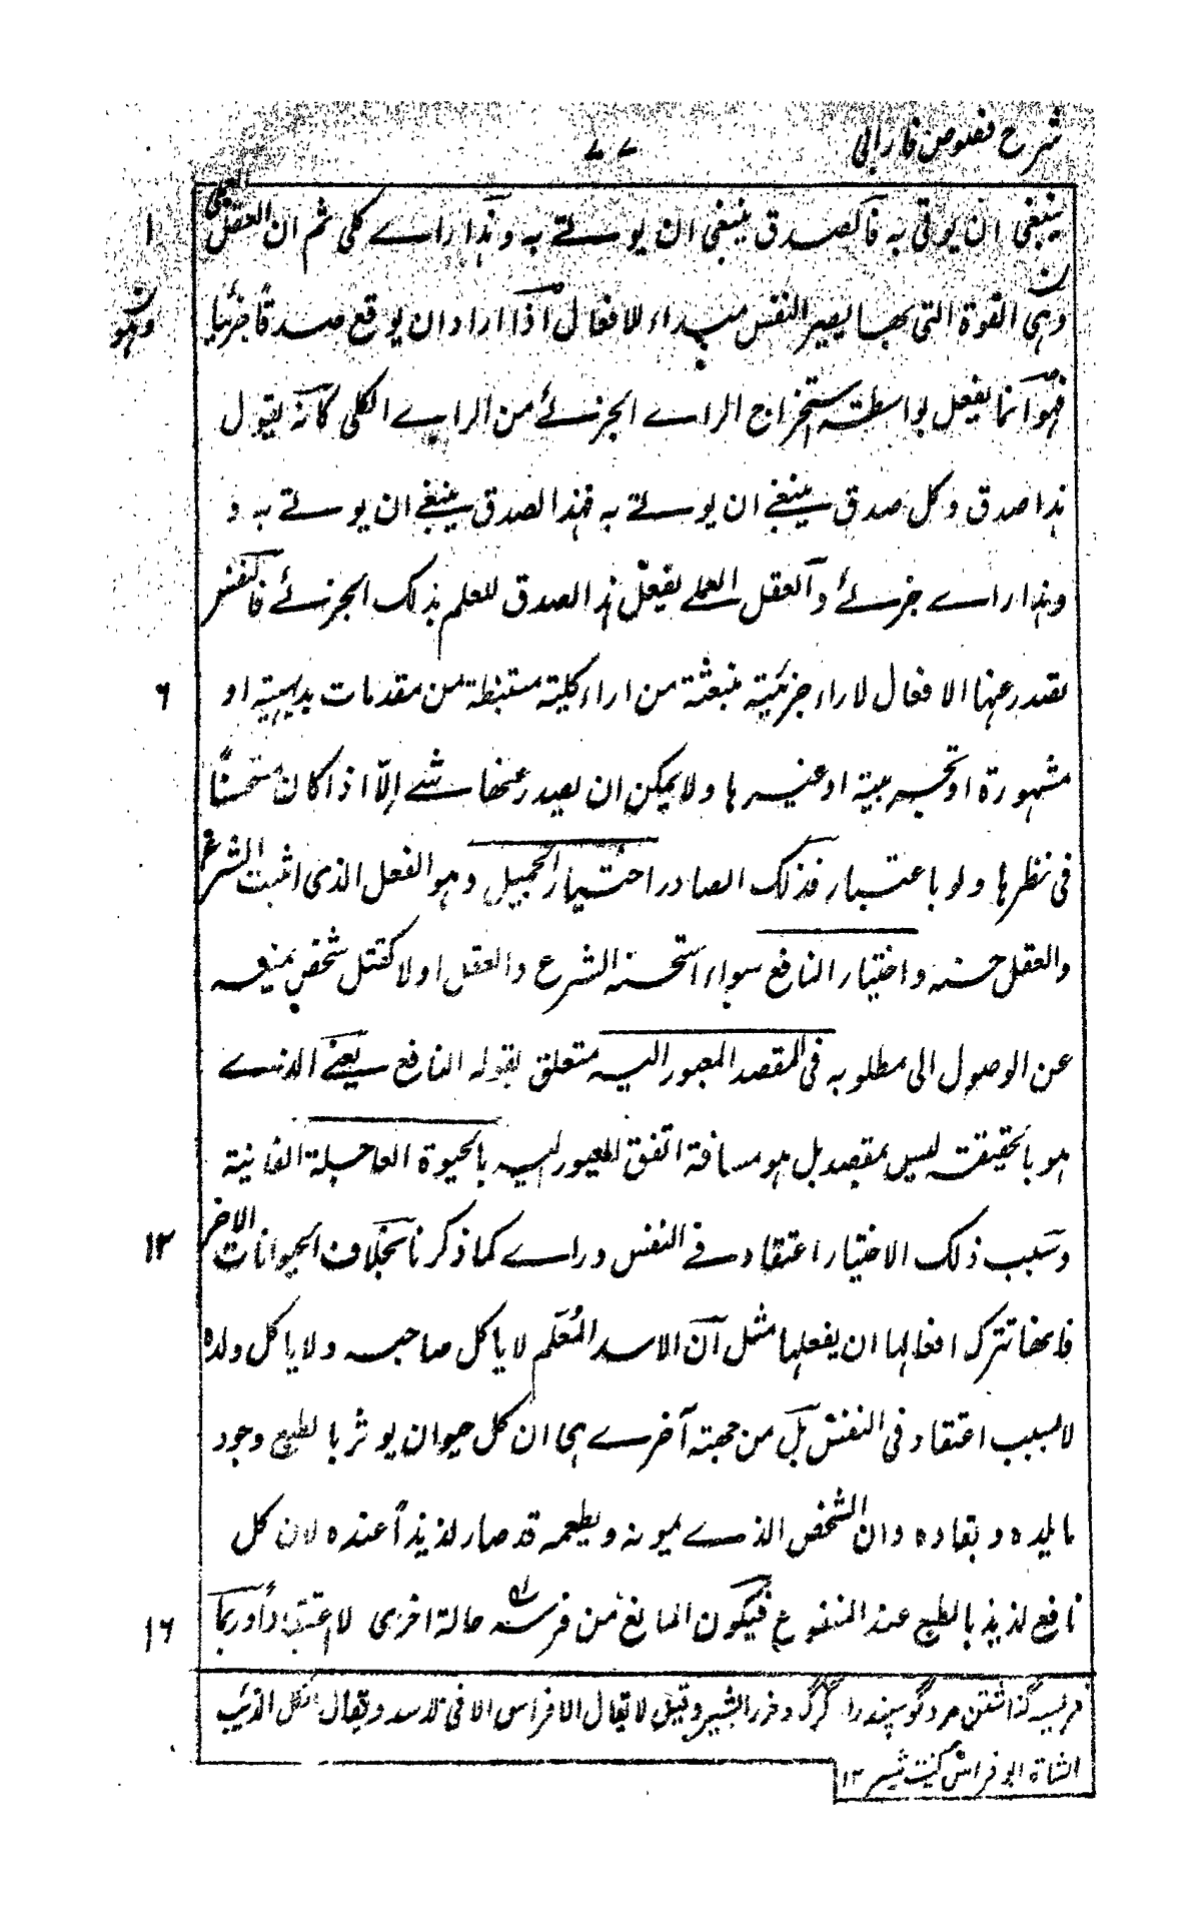 شرح فصوص فارابی ۷۷
ینبغی ان یوتی به فالصدق ینبغی ان یوتے به وہذا راے کلی ثم ان العقل العملی ۱
وہی القوة التی بہا یصیر النفس مبداء للافعال اذا اراد ان یوقع صدقاً جزئیا وہو
فہو انما یفعل بواسطة استخراج الراے الجزئے من الراے الکلی کانه یقول
ہذا صدق وکل صدق ینبغے ان یوتے به فہذا الصدق ینبغے ان یوتے به و
وہذا راے جزئے والعقل العملے یفعل ہذا الصدق للعلم بذلک الجزئے فالنفس
یصدر عنہا الافعال لاراء جزئیة منبعثة من اراء کلیة مستنبطة من مقدمات بدیہیة او ۶
مشہورة او تجربیة او غیرہا ولا یمکن ان یصدر عنہا شے الّا اذا کان مستحسنًا
فی نظرہا ولو باعتبار فذلک الصادر اختیار الجمیل وہو الفعل الذی اثبت الشرع
والعقل حسنه واختیار النافع سواء استحسنه الشرع والعقل اولا کقتل شخص یمنعه
عن الوصول الی مطلوبه فی المقصد المعبور الیه متعلق بقوله النافع یعنے الذے
ہو بالحقیقت لیس بمقصد بل ہو مسافة اتفق العبور الیه بالحیوة العاجلة الفانیة
وسبب ذلک الاختیار اعتقاد فے النفس وراے کما ذکرنا بخلاف الحیوانات الاخر ۱۲
فانہا تترک افعالہا ان یفعلہا مثل ان الاسد المُعلَّم لا یاکل صاحبه ولا یاکل ولدہ
لا لسبب اعتقاد فی النفس بل من جہة آخرے ہی ان کل حیوان یوثر بالطبع وجود
ما یلدہ و بقادہ وان الشخص الذے یمونه ویطعمه قد صار لذیذاً عندہ لان کل
نافع لذیذ بالطبع عند المنفوع فیکون المانع من فرسه حالة اخری لا اعتقاداً وربما ۱۶
فریسه گذاشتن مردگوسپندرا گرگ وقیل لا یقال الافراس الا فی الاسد ویقال اکل الذئب
الشاة ابو فراس کنیت شیر ۱۲